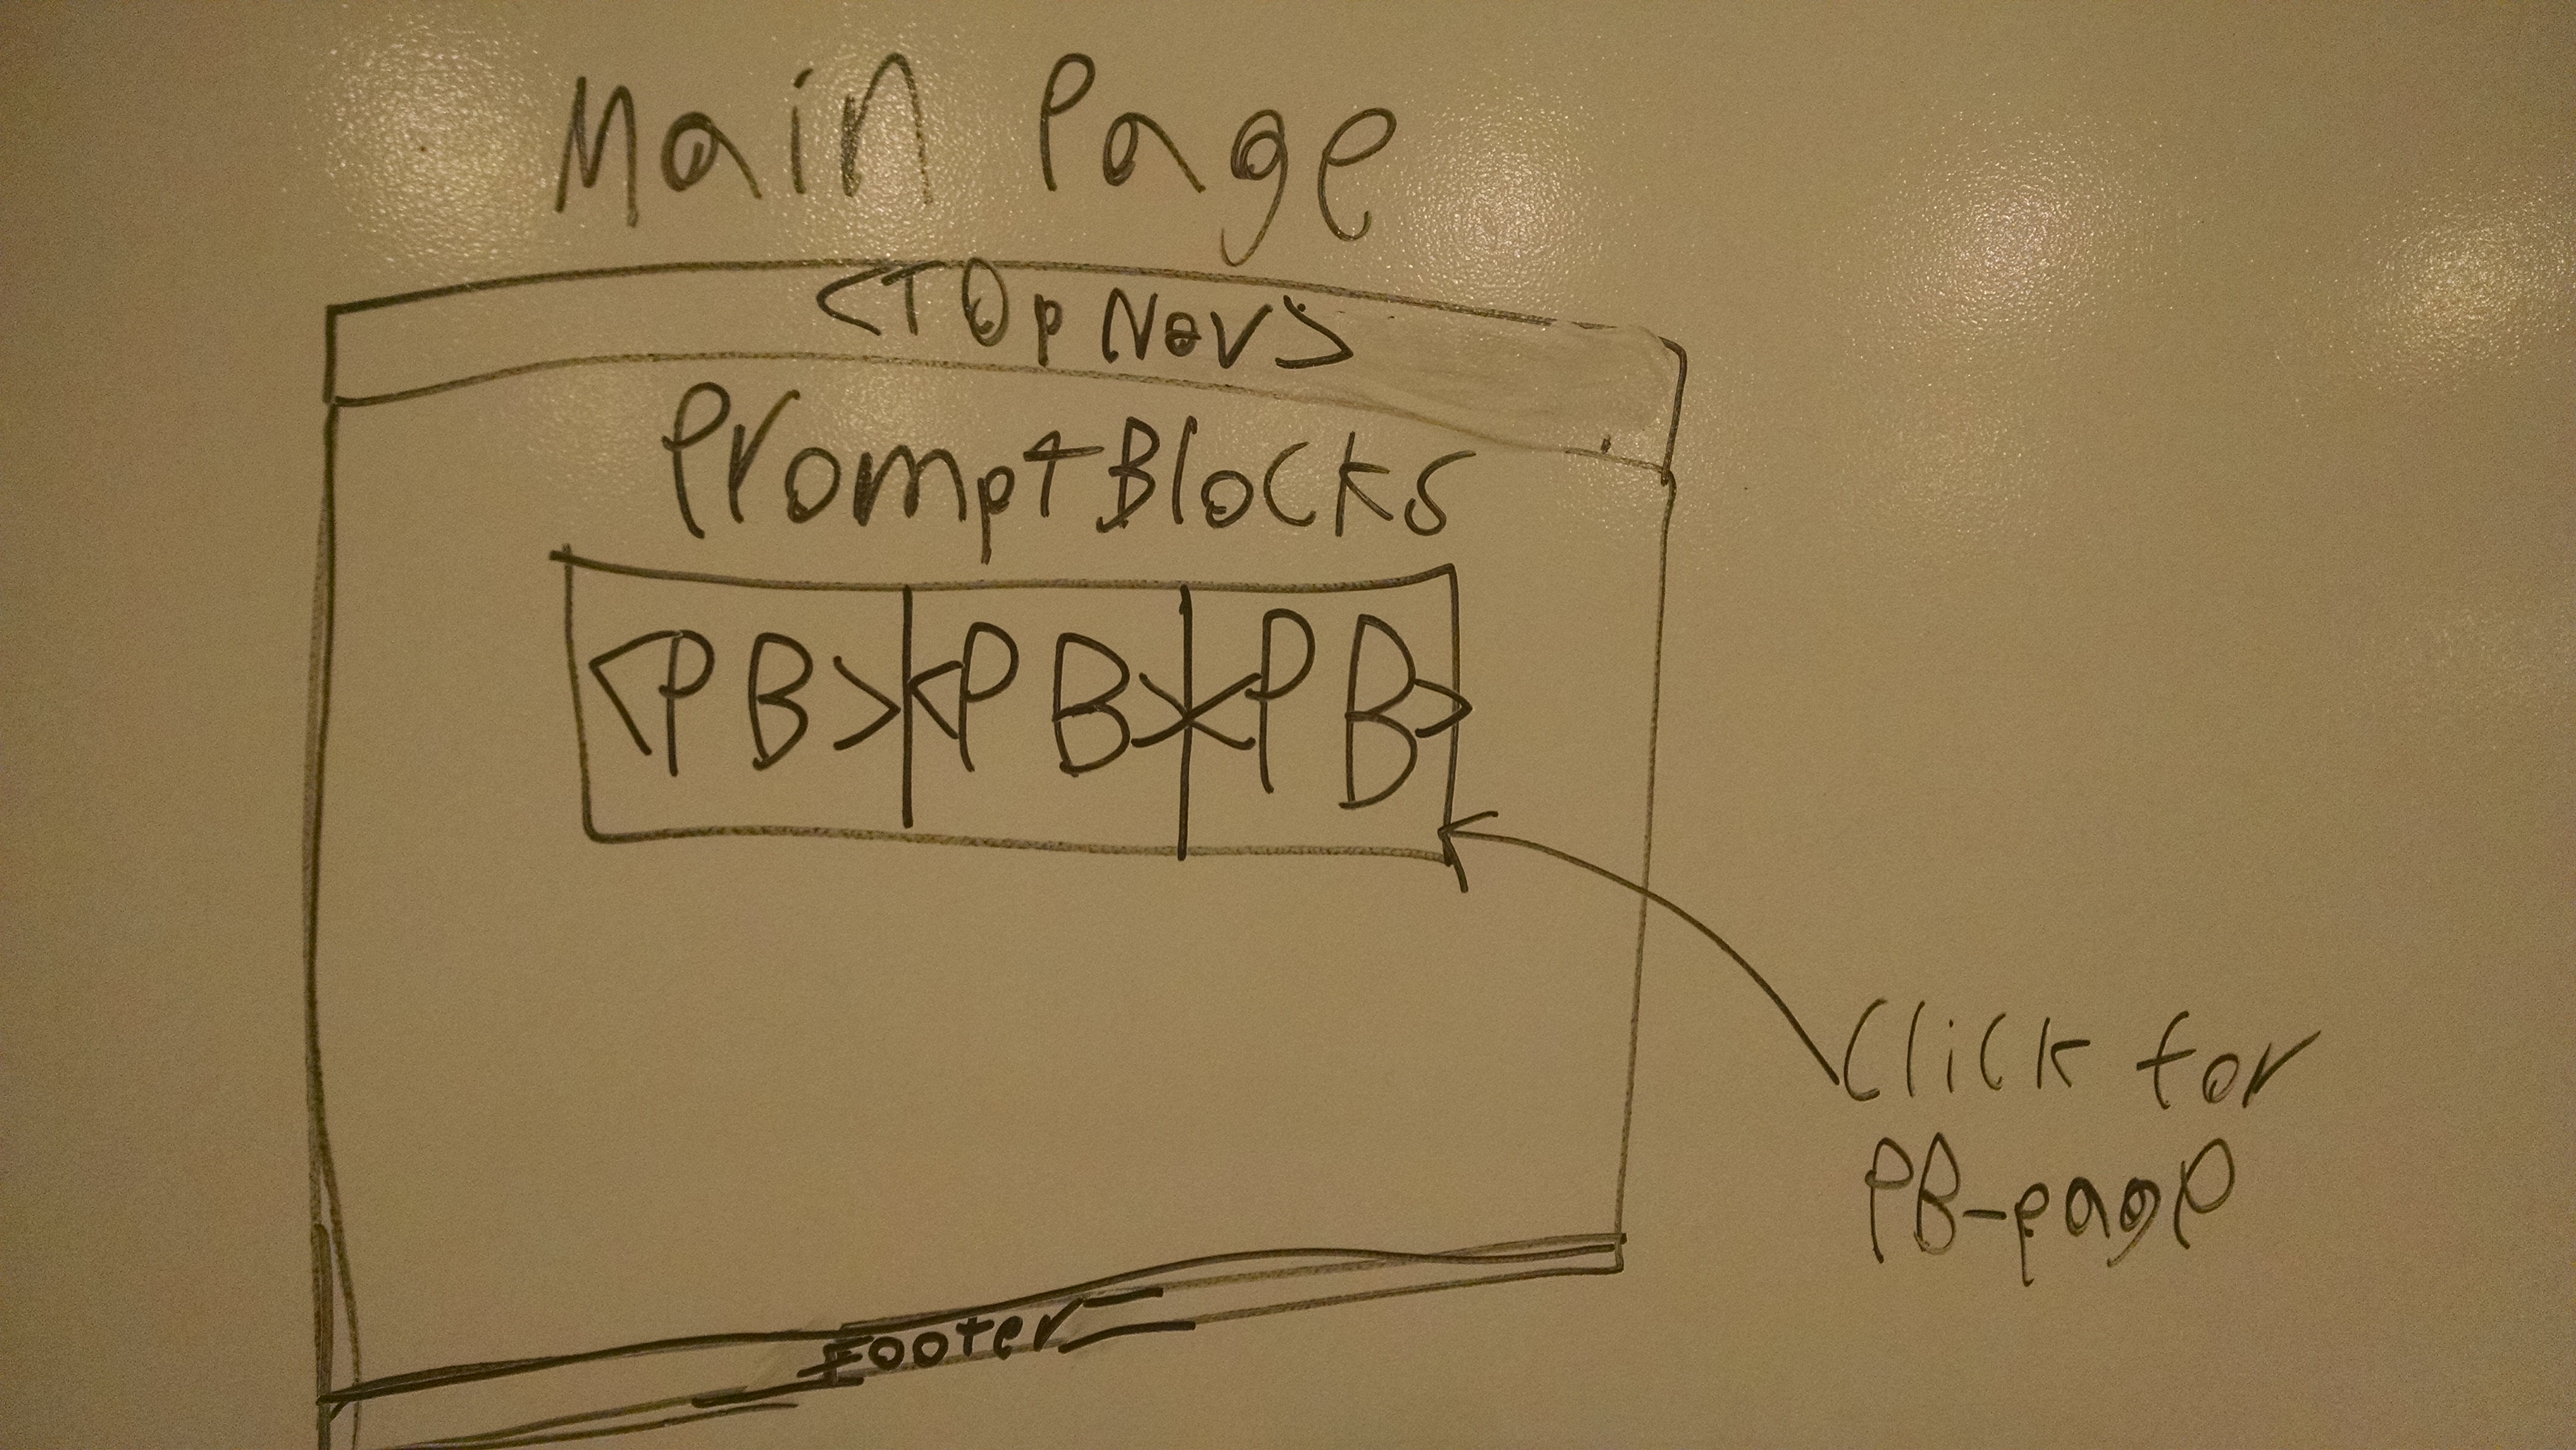 Main Page
<Top Nav>
Prompt Blocks
<PB> <PB> <PB>
Click for
PB-page
Footer